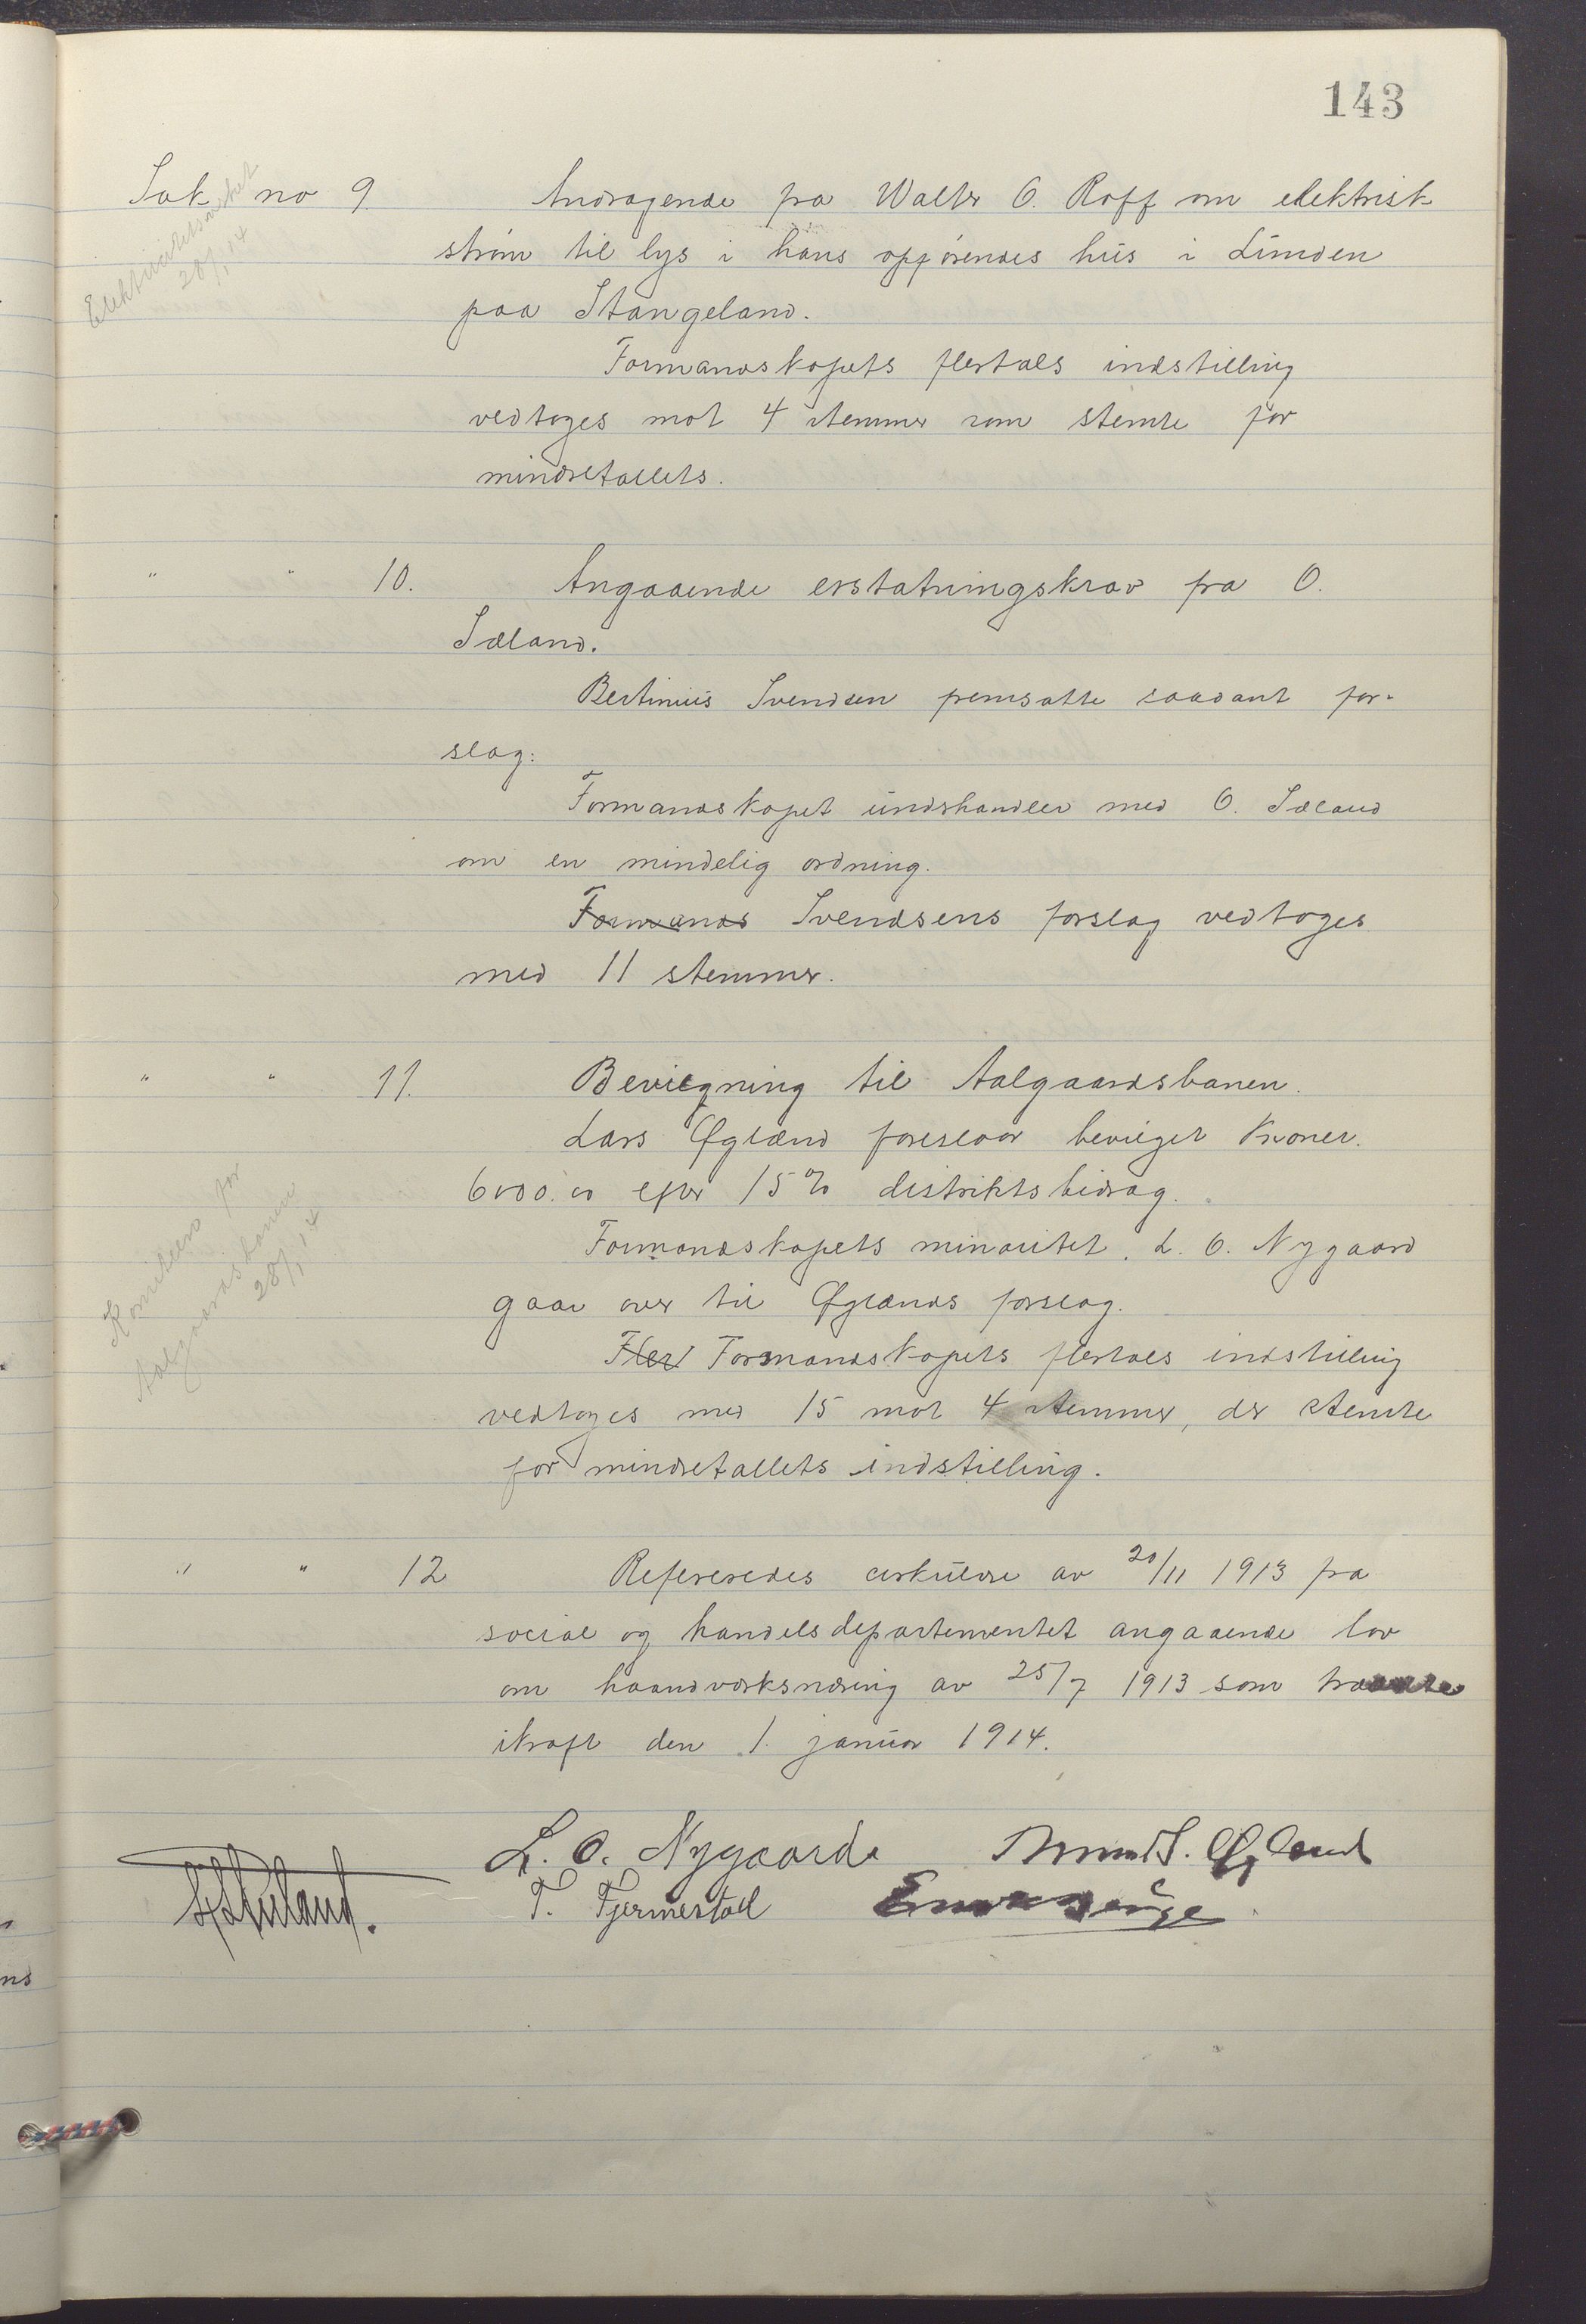 143
Sak no 9. Andragende fra Walter O. Roff om elektrisk
Elektricitetsverket
28/1 14
strøm til lys i hans opførendes hus i Lunden
paa Stangeland.
Formandskapets flertals indstilling
vedtoges mot 4 stemmer som stemte for
mindretallets.
" " 10. Angaaende erstatningskrav fra O.
Sæland.
Bertinius Svendsen fremsatte saadant for-
slag:
Formandskapet underhandler med O. Sæland
om en mindelig ordning.
Formands Svendsens forslag vedtoges
med 11 stemmer.
" " 11. Bevilgning til Aalgaardsbanen.
Lars Øglænd foreslaar bevilget Kroner.
6000.00 efter 15% distriktsbidrag.
Komiteen for
Aalgaardsbanen
28/1 14
Formandskapets minoritet, L. O. Nygaard
gaar over til Øglænds forslag.
Fler Formandskapets flertals indstilling
vedtoges med 15 mot 4 stemmer, der stemte
for mindretallets indstilling.
" " 12 Refereredes cirkulære av 20/11 1913 fra
social og handelsdepartementet angaaende lov
om haandverksnæring av 25/7 1913 som
ikraft den 1. januar 1914.
L. O. Nygaard Øglænd
T. Tjermestad